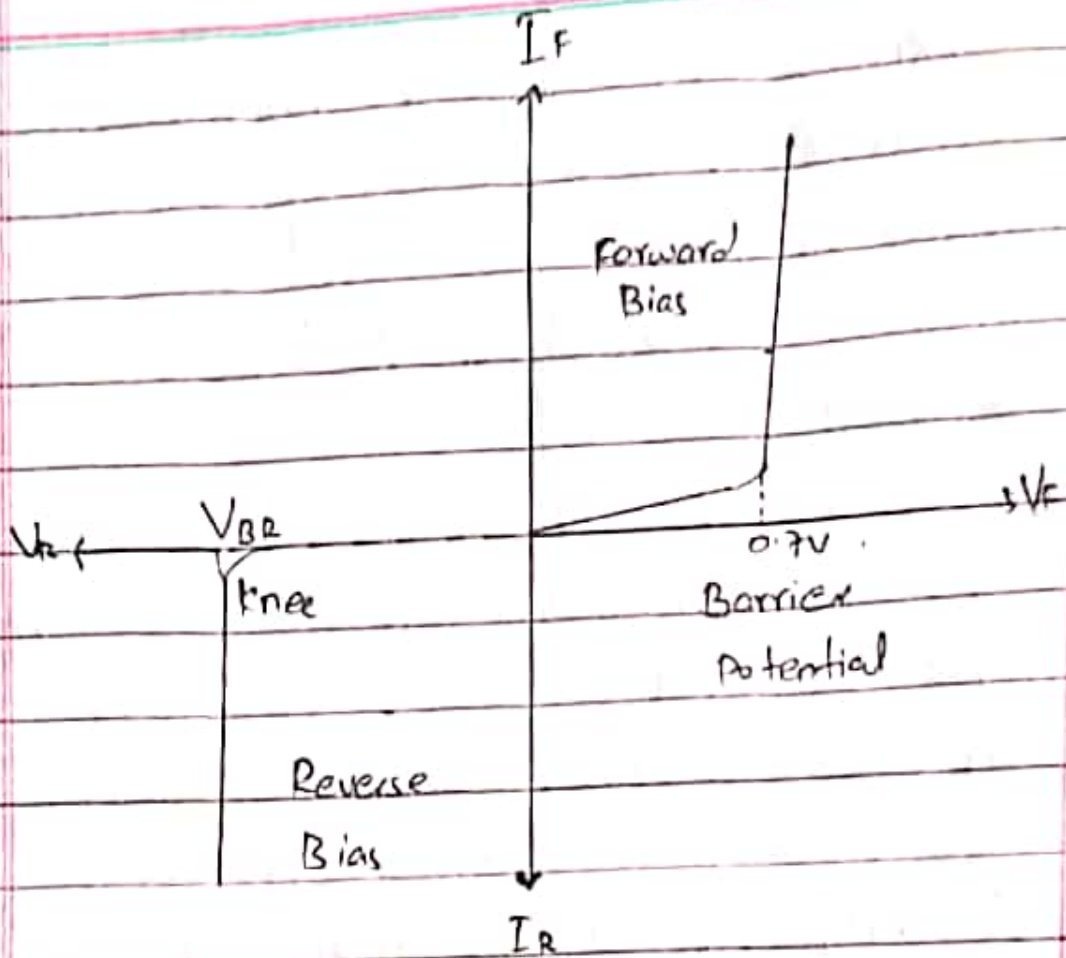 I_F
Forward
Bias
V_F
V_BR
V_R
0.7V
Knee
Barrier
Potential
Reverse
Bias
I_R